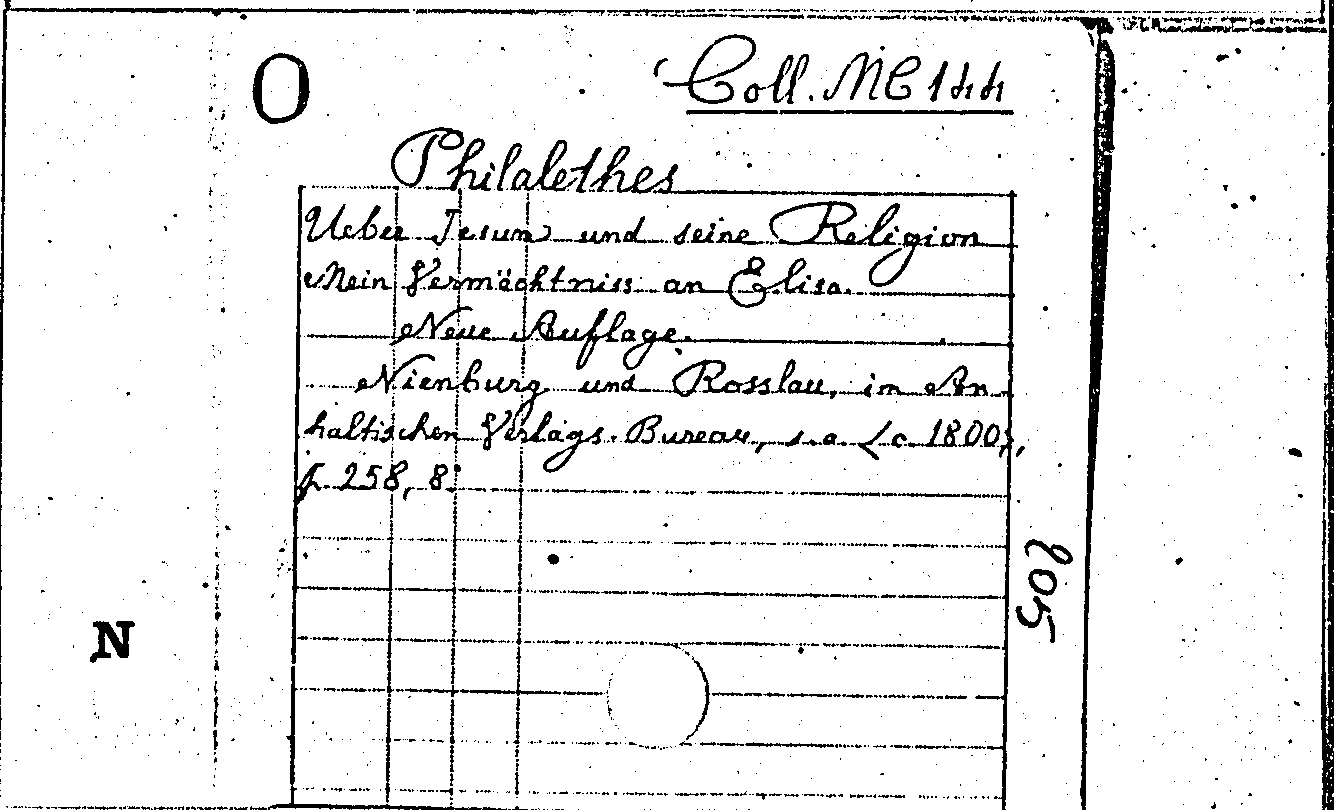 O
Coll. MC 144
Philalethes
Ueber Jesum und seine Religion
Mein Vermächtniss an Elisa.
Neue Auflage.
Nienburg und Rosslau, im An-
haltischen Verlags-Bureau, s.a. (c. 1800),
p. 258, 8°
805
N